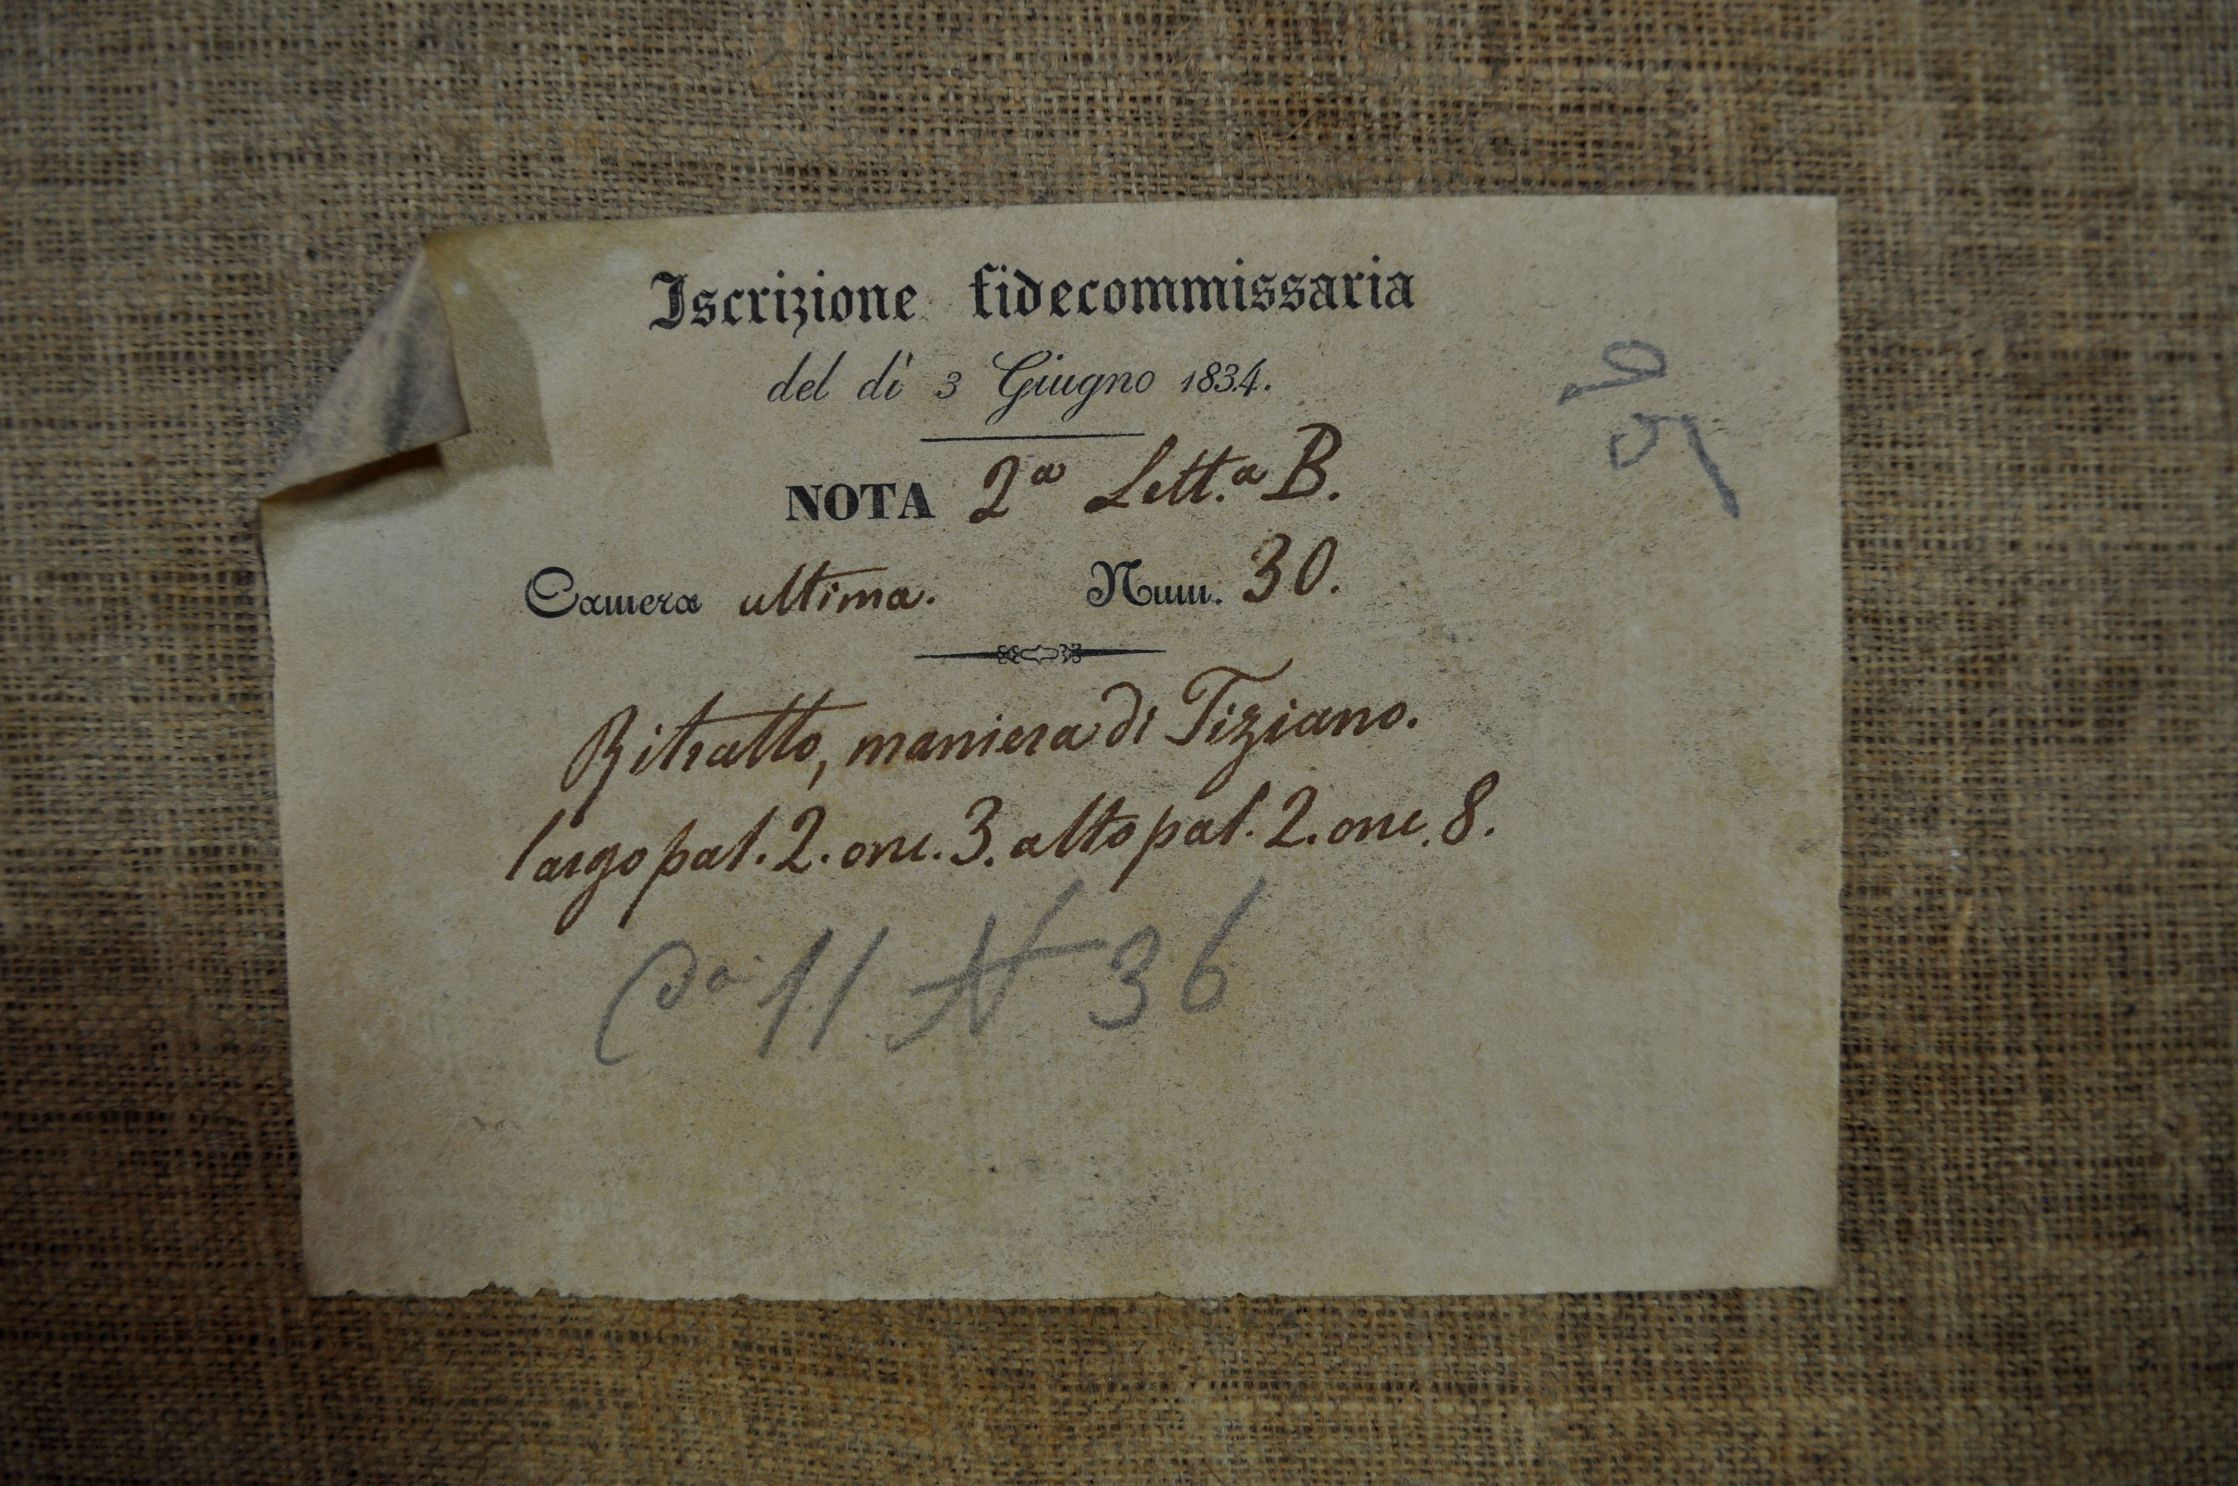 Iscrizione fidecommissaria
del dì 3 Giugno 1834.
NOTA 2ª Lett.ª B.
Camera ultima. Num. 30.
Ritratto, maniera di Tiziano.
largo pal. 2. onc. 3. alto pal. 2. onc. 8.
11 N 36